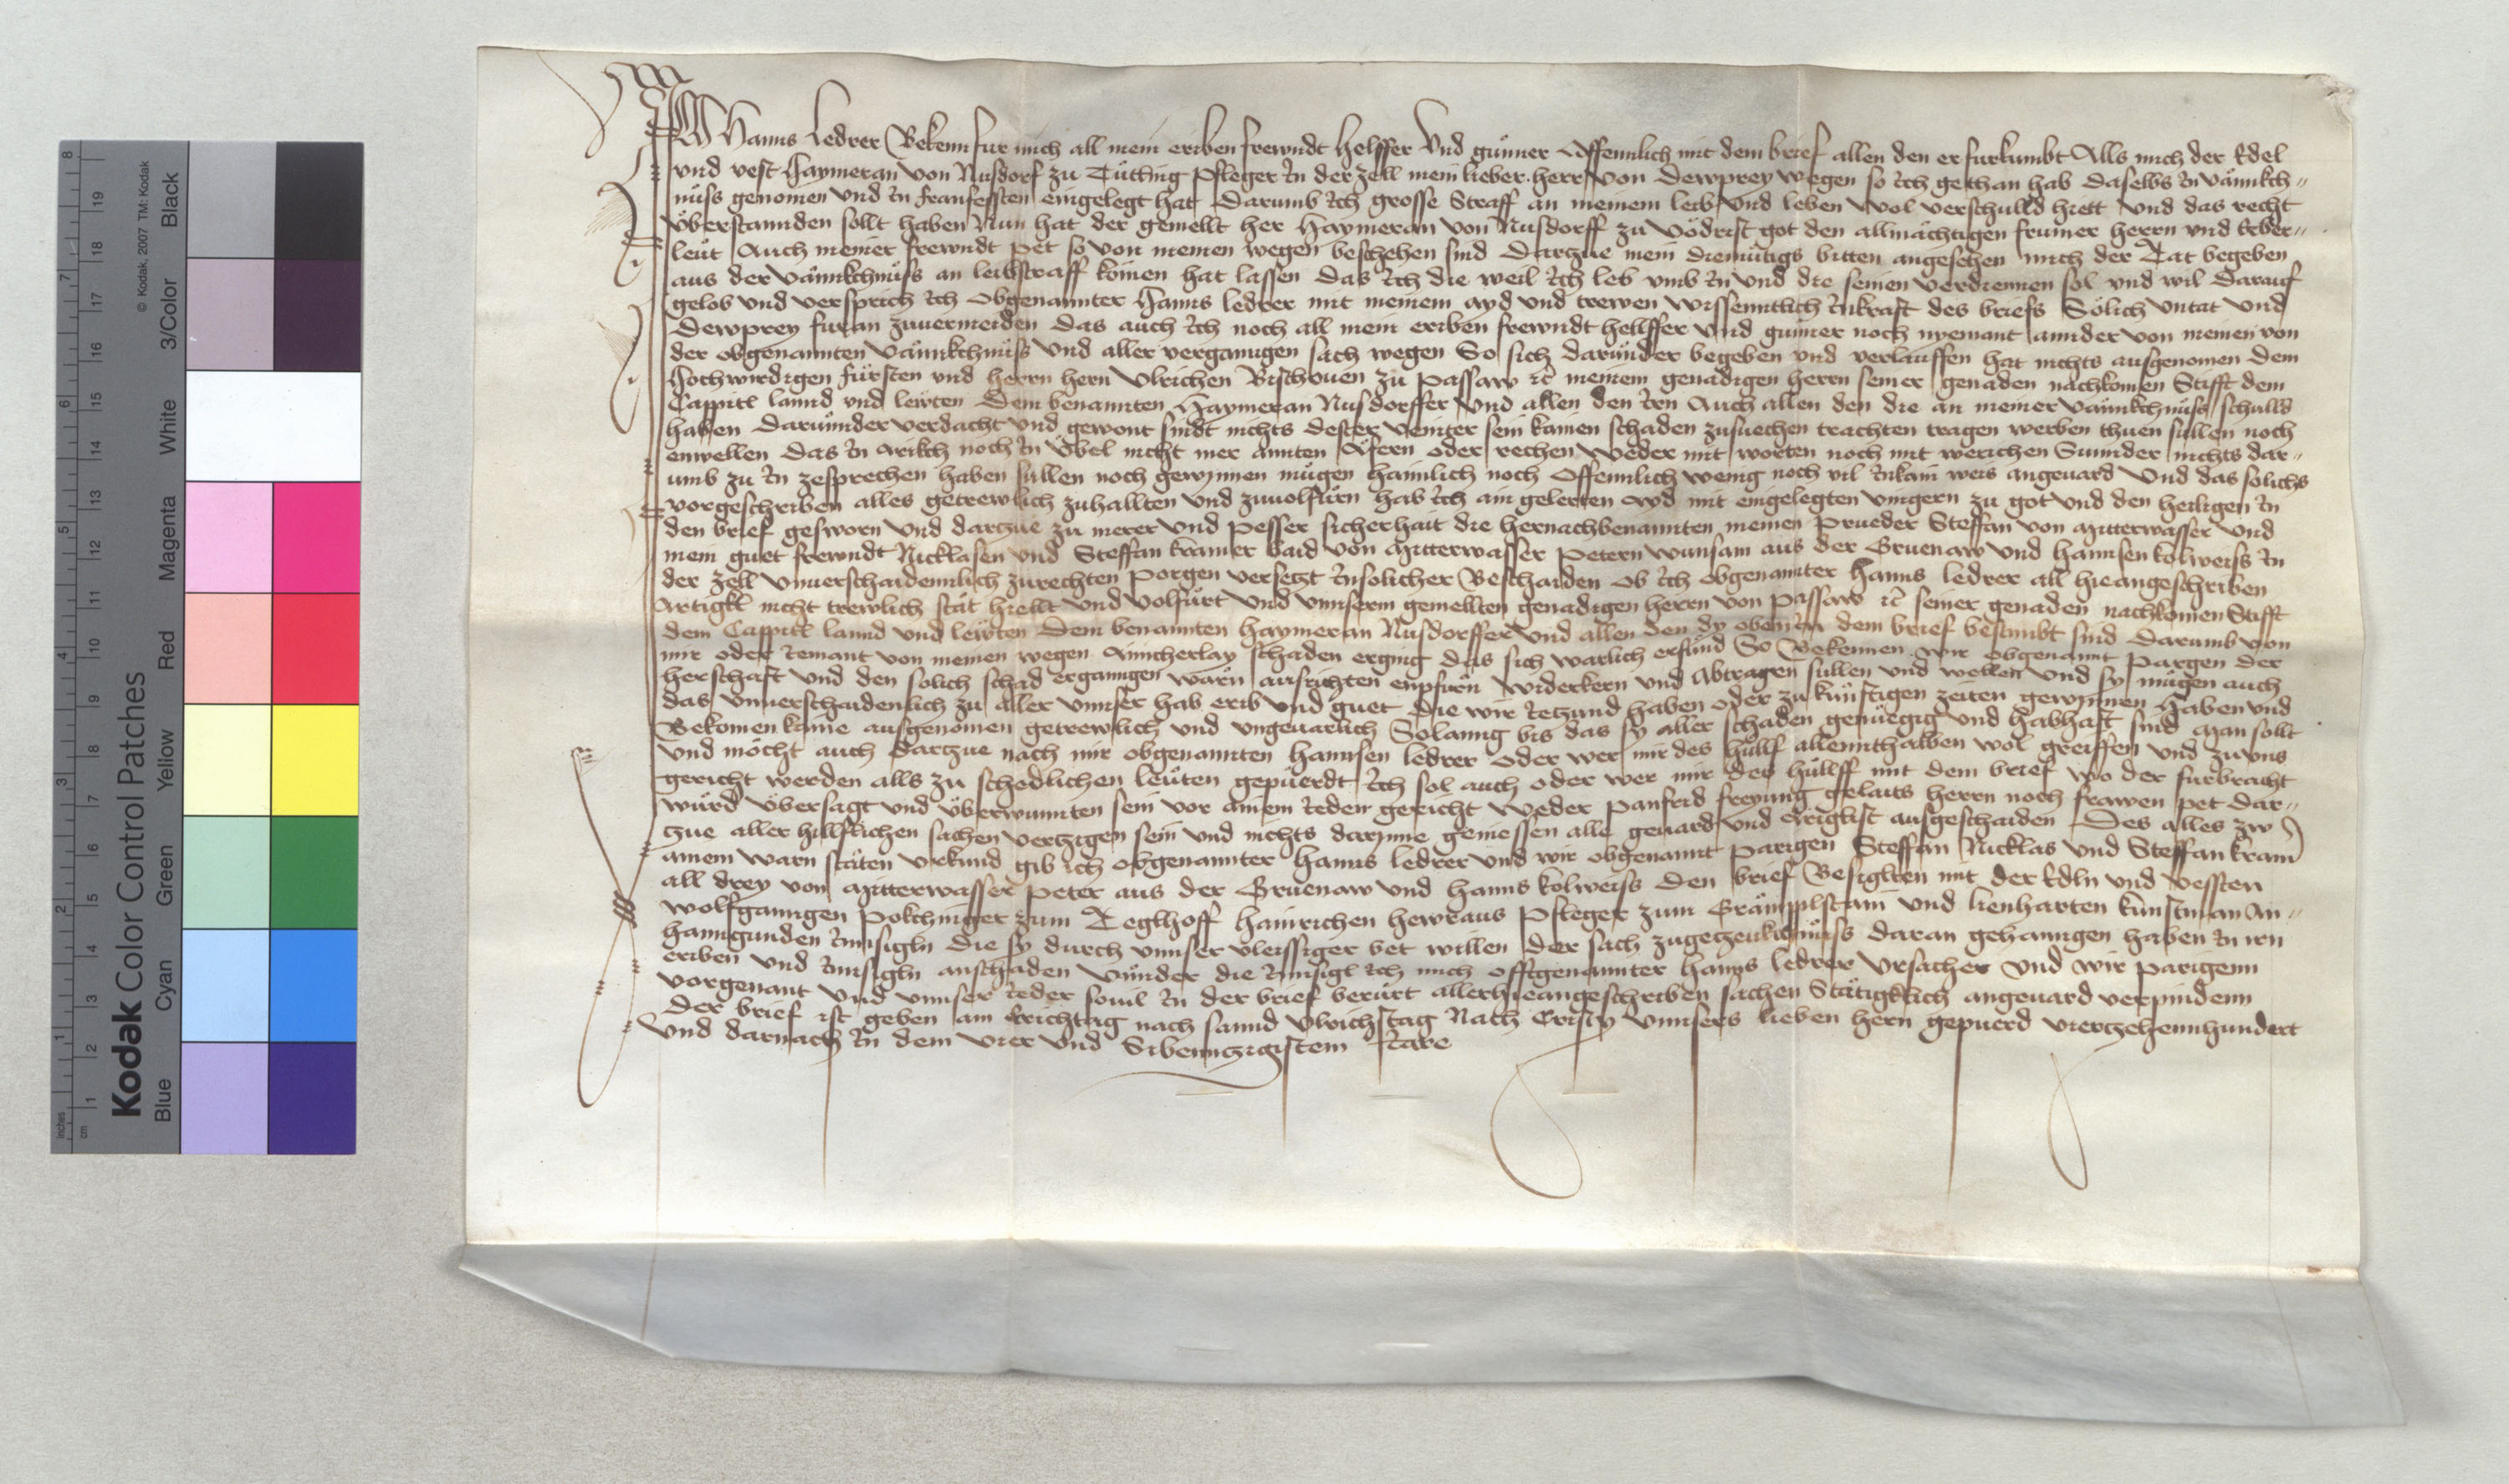 Ich Hanns Ledrer Bekenn fur mich all mein eriben frewndt helffer Vnd gunner Offennlich mit dem brief allen den er furkumbt Alls mich der Edel
vnd vest Haymeran von Nusdorf zu Tutting Pfleger In der zell mein lieber herr von dewprey wegen so Ich gethan hab daselbs In vännkch„
nüss genomen vnd In frannfessten eingelegt hat Darumb Ich grosse Straff an meinem leib vnd leben wol verschulld hiett vnd das recht
überstannden sollt haben Nun hat der gemellt her Haymeran von Nusdorff zu vödrist got den allmächtigen frumer herrn vnd Erber„
leüt Auch meiner frewndt pet so von meinen wegen beschehen sind Darzue mein diemütigs bitten angesehen mich der Tat begeben
aus der vännkchnüss an leibstraff komen hat lassen das Ich die weil Ich leb vmb In vnd die seinen verdiennen sol vnd wil Darauf
gelob vnd versprich Ich Obgenannter Hanns ledrer mit meinem ayd vnd trewen wissenntlich Inkraft des briefs Sölich vntat vnd
Dewprey furan zuuermeiden das auch Ich noch all mein eriben frewndt hellffer vnd gunner noch nyemant annder von meinen von
der obgenannten vännkchnüss vnd aller verganngen sach wegen So sich darunder begeben vnd verlauffen hat nichts ausgenomen dem
Hochwirdigen fürsten vnd herrn hern Vlrichen Bischouen zu Passaw etc meinem genädigen herrn seiner genaden nachkomen Stifft dem
Cappitl lannd vnd lewten Dem benannten Haymeran Nusdorffer vnd allen den Iren Auch allen den die an meiner vännkchnüss schulld
haben darunnder verdacht vnd gewont sindt nichts dester veinter sein kainen schaden zusuechen trachten tragen werben thuen sullen noch
enwellen das In Arikch noch In Übel nicht mer annten Äfern oder rechen Weder mit worten noch mit werichen Sunnder nichts dar„
umb zu In zesprechen haben sullen noch gewynnen mügen haimlich noch Offennlich wenig noch vil Inkain weis angeuard Vnd das solichs
vorgeschriben alles getrewlich zuhallten vnd zuuolfürn hab Ich ain gelerten Ayd mit eingelegten vingern zu got vnd den heiligen In
den brief gesworn vnd darzue zu merer vnd pesser sicherhait die hernachbenannten meinen Prueder Steffan von Mitterwasser vnd
mein guet frewndt Nicklasen vnd Steffan kramer baid von Mitterwasser Petern wunsam aus der Gruenaw vnd hannsen kolweiss In
der zell vnuerschaidennlich zurechten Porgen versetzt Insolicher Bescheiden Ob Ich obgenannter Hanns ledrer all hieangeschriben
Artigkl nicht trewlich stät hiellt vnd volfürt vnd vnnserm gemellten genadigen herrn von Passaw etc seiner genaden nachkomen Stifft
dem Cappitl lannd vnd lewten Dem benannten Haymeran Nusdorffer vnd allen den dy oben In dem brief bestimbt sind Darumb von
mir oder Iemant von meinen wegen Ainicherlay schaden erging das sich warlich erfünd So Bekennen wir obgenannt Pargen der
herschaft vnd den solich schad erganngen wärn ausrichten enpfürn widerkern vnd Abtragen sullen vnd wellen vnd sy mügen auch
das vnuerschaidenlich zu aller vnnser hab erib vnd guet Die wir Ietzund haben oder zu künftigen zeiten gewynnen Haben vnd
Bekomen kaine ausgenomen getrewlich vnd vngeuarlich Solanng bis das sy aller schaden genüegig vnd habhaft sind Man sollt
vnd möcht auch darzue nach mir obgenannten Hannsen ledrer Oder wer mir des hüllf allennthalben wol greiffen vnd zu vns
gericht werden alls zu schedlichen leüten gepüerdt Ich sol auch oder wer mir des hüllff mit dem brief wo der furbracht
würd übersagt vnd überwunnten sein vor ainem Ieden gericht weder panfrid freyung gelaits herrn noch frawen pet dar„
zue aller hilfflichen sachen verzigen sein vnd nichts darynne geniessen alle geuard vnd Ariglist ausgeschaiden Des alles zw
ainem warn stäten vrkund gib ich obgenannter Hanns ledrer vnd wir obgenannt Parigen Steffan Nicklas vnd Steffan kram
all drey von Mitterwasser Peter aus der Gruenaw vnd Hanns kolweiss Den brief Besiglten mit der Edln vnd vessten
wolfganngen Pokchinger zum Teglhoff Hainrichen hewraus Pfleger zum Grämpplstain vnd lienharten kunstman An„
hanngunden Innsigln Die sy durch vnnser vleissiger bet willen der sach zugezeukchnüss daran gehanngen haben In irn
eriben vnd Innsigln anschaden vnnder die Innsigl Ich mich offtgenannter Hanns ledrer vrsacher Vnd wir parigenn
vorgenant vnd vnnser Ieder souil In der brief berürt allerhieangeschriben sachen Stätigklich angeuard verpindenn
Der brief ist geben am Erichtag nach sannd Vlrichstag Nach Cristy vnnsers lieben hern gepuerd vierzehennhundert
Vnd darnach In dem vier vnd Sibenntzigistem Iare
Kodak Color Control Patches
© Kodak, 2007 TM: Kodak
Blue Cyan Green Yellow Red Magenta White 3/Color Black
inches 1 2 3 4 5 6 7 8
cm 1 2 3 4 5 6 7 8 9 10 11 12 13 14 15 16 17 18 19